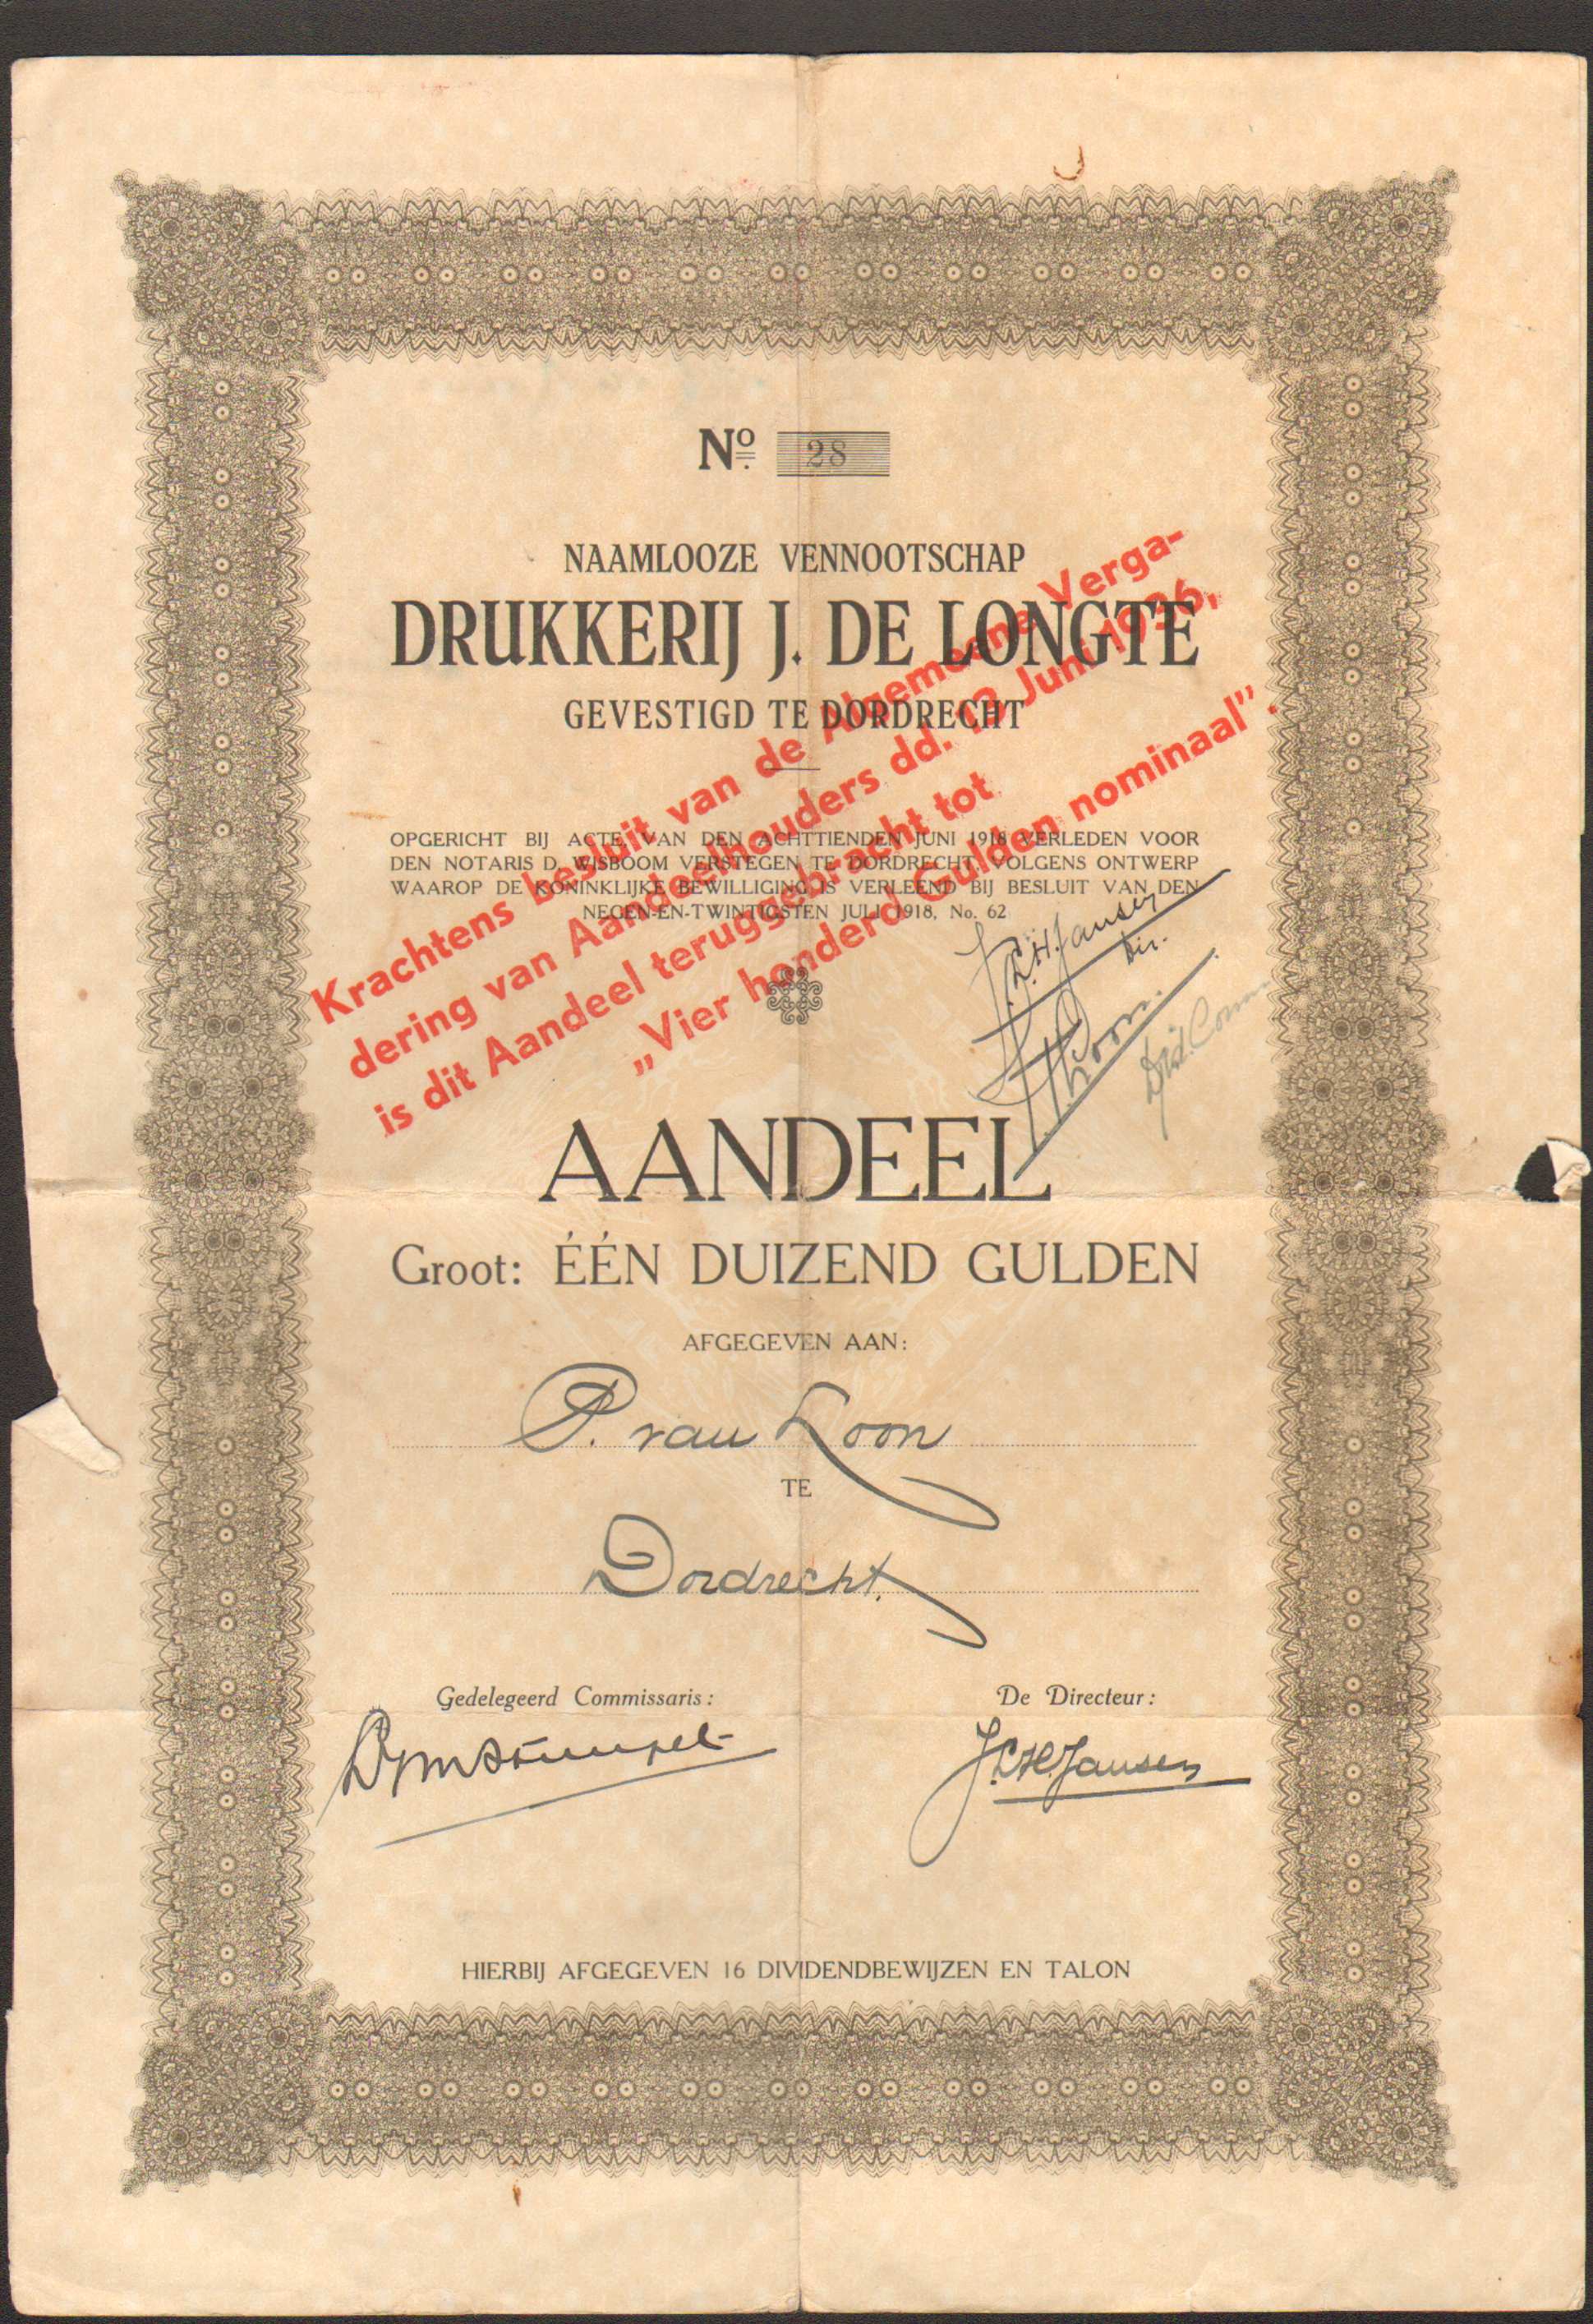 Nº 28
NAAMLOOZE VENNOOTSCHAP
DRUKKERIJ J. DE LONGTE
GEVESTIGD TE DORDRECHT
OPGERICHT BIJ ACTE, VAN DEN ACHTTIENDEN JUNI 1918 VERLEDEN VOOR
DEN NOTARIS D. WISBOOM VERSTEGEN TE DORDRECHT, VOLGENS ONTWERP
WAAROP DE KONINKLIJKE BEWILLIGING IS VERLEEND BIJ BESLUIT VAN DEN
NEGEN-EN-TWINTIGSTEN JULI 1918, No. 62
Krachtens besluit van de Algemeene Verga-
dering van Aandeelhouders dd. Juni 1936,
is dit Aandeel teruggebracht tot
„Vier honderd Gulden nominaal”.
J.C.H. Jansen
Dir.
AANDEEL
Groot: ÉÉN DUIZEND GULDEN
AFGEGEVEN AAN:
P. van Loon
TE
Dordrecht.
Gedelegeerd Commissaris: De Directeur:
J.C.H. Jansen
HIERBIJ AFGEGEVEN 16 DIVIDENDBEWIJZEN EN TALON